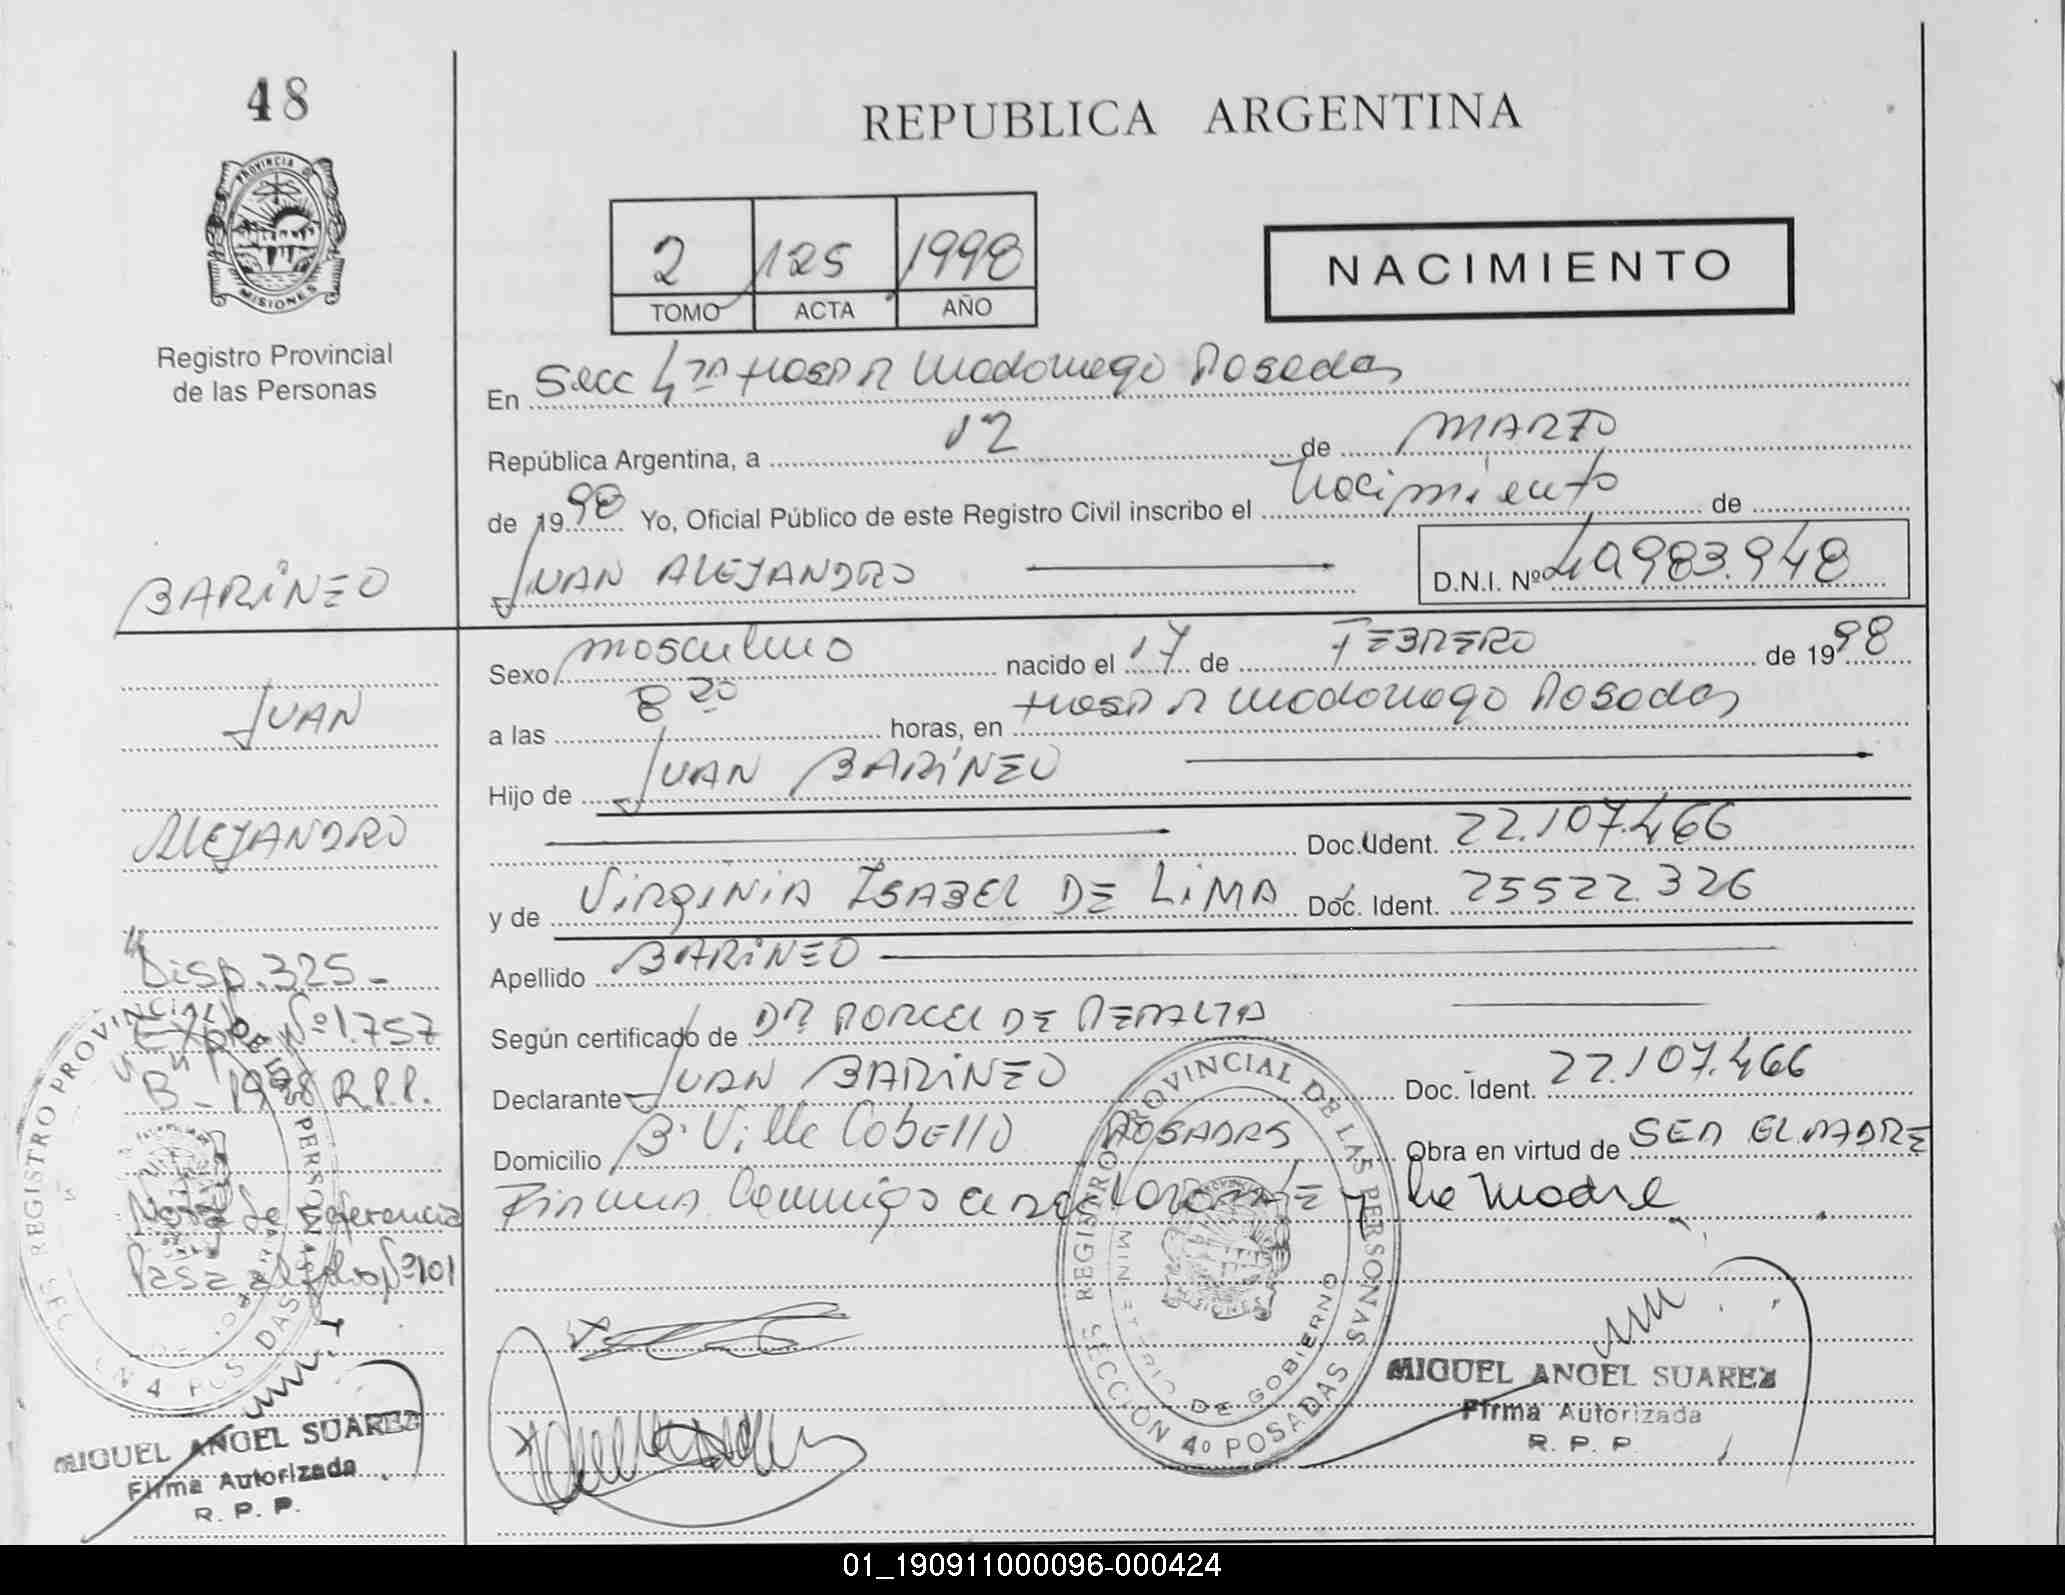 48
REPUBLICA ARGENTINA
PROVINCIA DE
MISIONES
Registro Provincial
de las Personas
2 125 1998
TOMO ACTA AÑO
NACIMIENTO
En Secc 4ta Hosp R Madariaga Posadas
República Argentina, a 12 de MARZO
de 1998 Yo, Oficial Público de este Registro Civil inscribo el Nacimiento de
JUAN ALEJANDRO D.N.I. Nº 40983.948
Sexo masculino nacido el 17 de FEBRERO de 1998
a las 8 20 horas, en Hosp R Madariaga Posadas
Hijo de JUAN BARINEO
Doc. Ident. 22.107.466
y de VIRGINIA ISABEL DE LIMA Doc. Ident. 25522.326
Apellido BARINEO
Según certificado de DR PORCEL DE PERALTA
Declarante JUAN BARINEO Doc. Ident. 22.107.466
Domicilio Bº Villa Cabello POSADAS Obra en virtud de SER EL PADRE
Firman Conmigo el declarante y la Madre
BARINEO
JUAN
ALEJANDRO
Disp. 325-
Expte Nº 1.757
"B"- 1998 R.P.P.
Nota de referencia
Pasa al folio Nº 101
REGISTRO PROVINCIAL DE LAS PERSONAS
SECCION 4º POSADAS
MIGUEL ANGEL SUAREZ
Firma Autorizada
R. P. P.
REGISTRO PROVINCIAL DE LAS PERSONAS
MINISTERIO DE GOBIERNO
SECCION 4º POSADAS
MIGUEL ANGEL SUAREZ
Firma Autorizada
R. P. P.
01_190911000096-000424